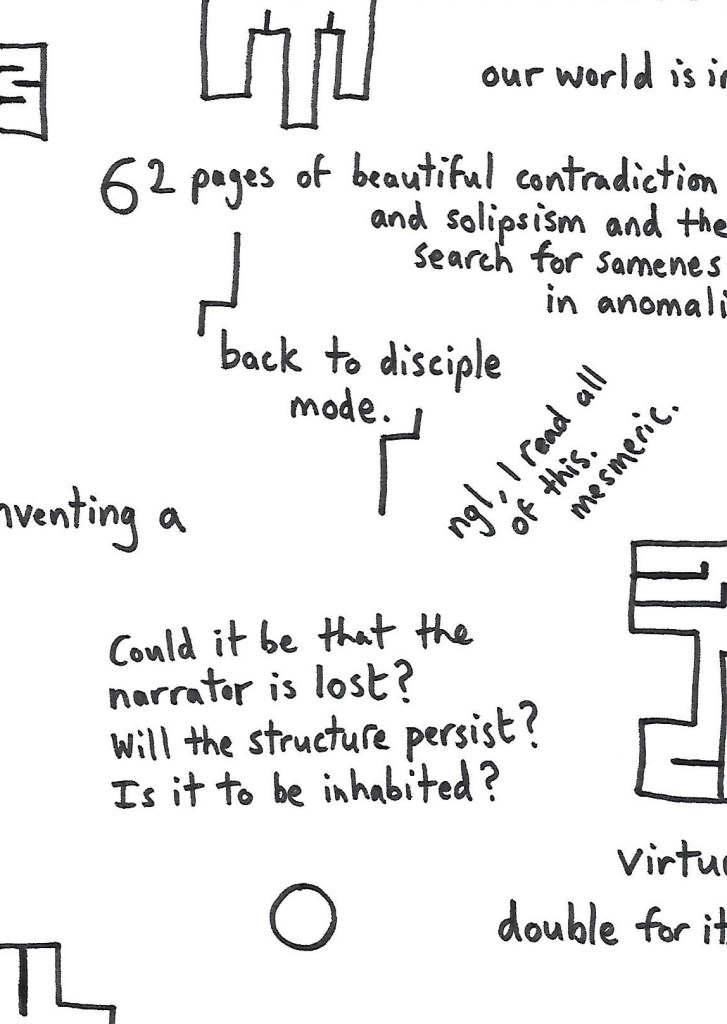 our world is
62 pages of beautiful contradiction
and solipsism and the
search for samenes
in anomali
back to disciple
mode.
ngl, I read all
of this.
mesmeric.
nventing a
Could it be that the
narrator is lost?
Will the structure persist?
Is it to be inhabited?
virtu
double for it